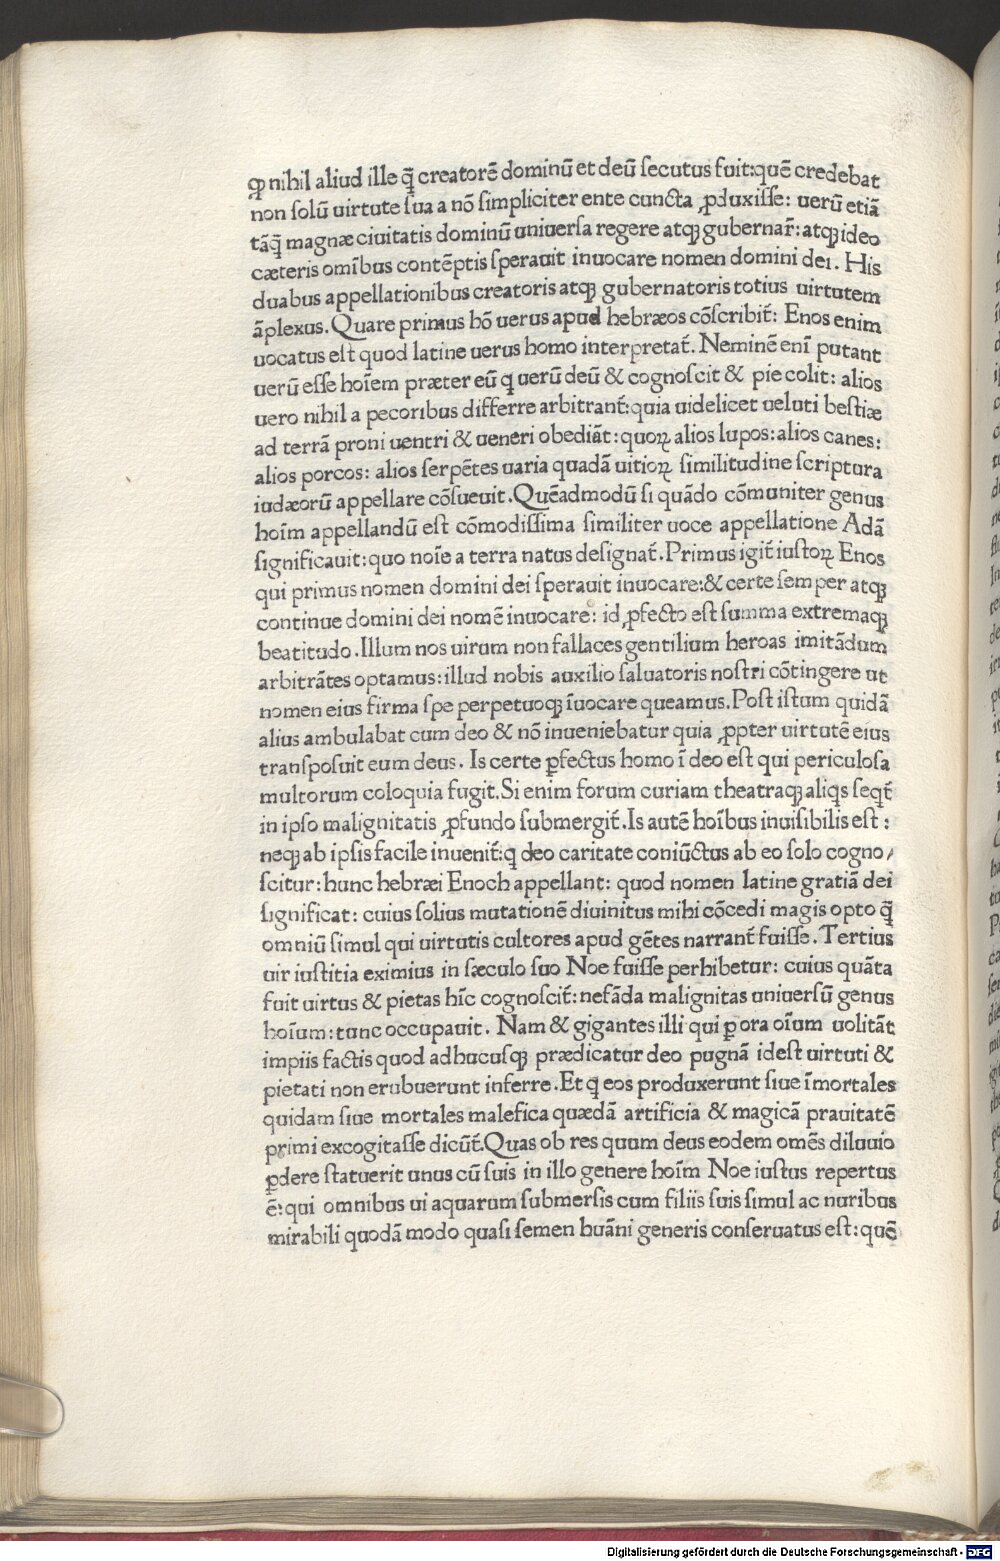 ꝙ nihil aliud ille q̄ creatorē dominū et deū ſecutus fuit:quē credebat
non ſolū uirtute ſua a nō ſimpliciter ente cuncta ꝓduxiſſe: uerū etiā
tāq̄ magnæ ciuitatis dominū uniuerſa regere atqꝫ gubernar̄: atqꝫ ideo
cæteris omībus contēptis ſperauit inuocare nomen domini dei. His
duabus appellationibus creatoris atqꝫ gubernatoris totius uirtutem
āplexus. Quare primus hō uerus apud hebræos cōſcribit̄: Enos enim
uocatus eſt quod latine uerus homo interpretat̄. Neminē enī putant
uerū eſſe hoīem præter eū q uerū deū & cognoſcit & pie colit: alios
uero nihil a pecoribus differre arbitrant̄:quia uidelicet ueluti beſtiæ
ad terrā proni uentri & ueneri obediāt: quoꝝ alios lupos: alios canes:
alios porcos: alios ſerpētes uaria quadā uitioꝝ ſimilitudine ſcriptura
iudæorū appellare cōſueuit. Quēadmodū ſi quādo cōmuniter genus
hoīm appellandū eſt cōmodiſſima ſimiliter uoce appellatione Adā
ſignificauit: quo noīe a terra natus deſignat̄. Primus igit̄ iuſtoꝝ Enos
qui primus nomen domini dei ſperauit inuocare:& certe ſemper atqꝫ
continue domini dei nomē inuocare: id ꝓfecto eſt ſumma extremaqꝫ
beatitudo. Illum nos uirum non fallaces gentilium heroas imitādum
arbitrātes optamus: illud nobis auxilio ſaluatoris noſtri cōtingere ut
nomen eius firma ſpe perpetuoqꝫ īuocare queamus. Poſt iſtum quidā
alius ambulabat cum deo & nō inueniebatur quia ꝓpter uirtutē eius
tranſpoſuit eum deus. Is certe ꝑfectus homo ī deo eſt qui periculoſa
multorum coloquia fugit. Si enim forum curiam theatraqꝫ aliqs ſeqt̄
in ipſo malignitatis ꝓfundo ſubmergit̄. Is autē hoībus inuiſibilis eſt:
neqꝫ ab ipſis facile inuenit̄: q deo caritate coniūctus ab eo ſolo cogno/
ſcitur: hunc hebræi Enoch appellant: quod nomen latine gratiā dei
ſignificat: cuius ſolius mutationē diuinitus mihi cōcedi magis opto q̄
omniū ſimul qui uirtutis cultores apud gētes narrant̄ fuiſſe. Tertius
uir iuſtitia eximius in ſæculo ſuo Noe fuiſſe perhibetur: cuius quāta
fuit uirtus & pietas hīc cognoſcit̄: nefāda malignitas uniuerſū genus
hoīum: tunc occupauit. Nam & gigantes illi qui ꝑ ora oīum uolitāt
impiis factis quod adhucuſqꝫ prædicatur deo pugnā ideſt uirtuti &
pietati non erubuerunt inferre. Et q eos produxerunt ſiue īmortales
quidam ſiue mortales malefica quædā artificia & magicā prauitatē
primi excogitaſſe dicūt̄. Quas ob res quum deus eodem omēs diluuio
ꝑdere ſtatuerit unus cū ſuis in illo genere hoīm Noe iuſtus repertus
ē: qui omnibus ui aquarum ſubmerſis cum filiis ſuis ſimul ac nuribus
mirabili quodā modo quaſi ſemen huāni generis conſeruatus eſt: quē
Digitalisierung gefördert durch die Deutsche Forschungsgemeinschaft - DFG